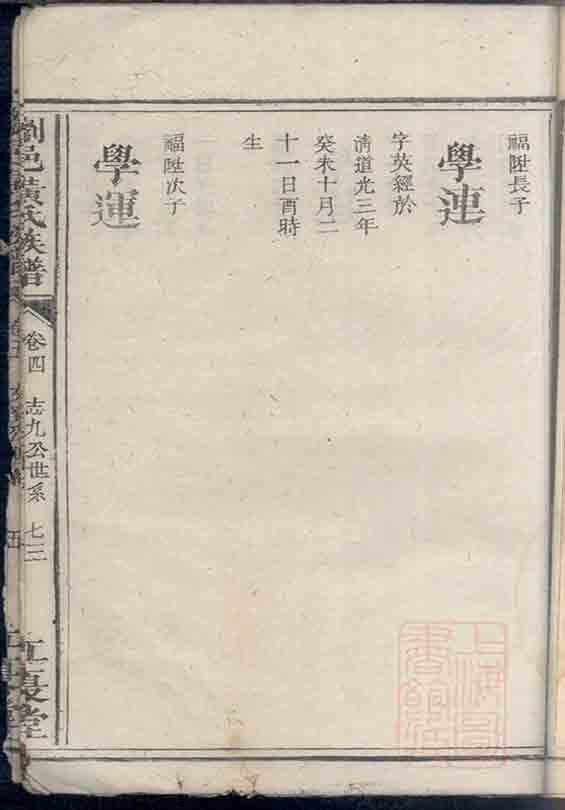 福陞長子
學連
字英經於
清道光三年
癸未十月二
十一日酉時
生
福陞次子
學運
瀏邑黃氏族譜
卷四
志九公世系
七三
江夏堂
上海圖書館藏